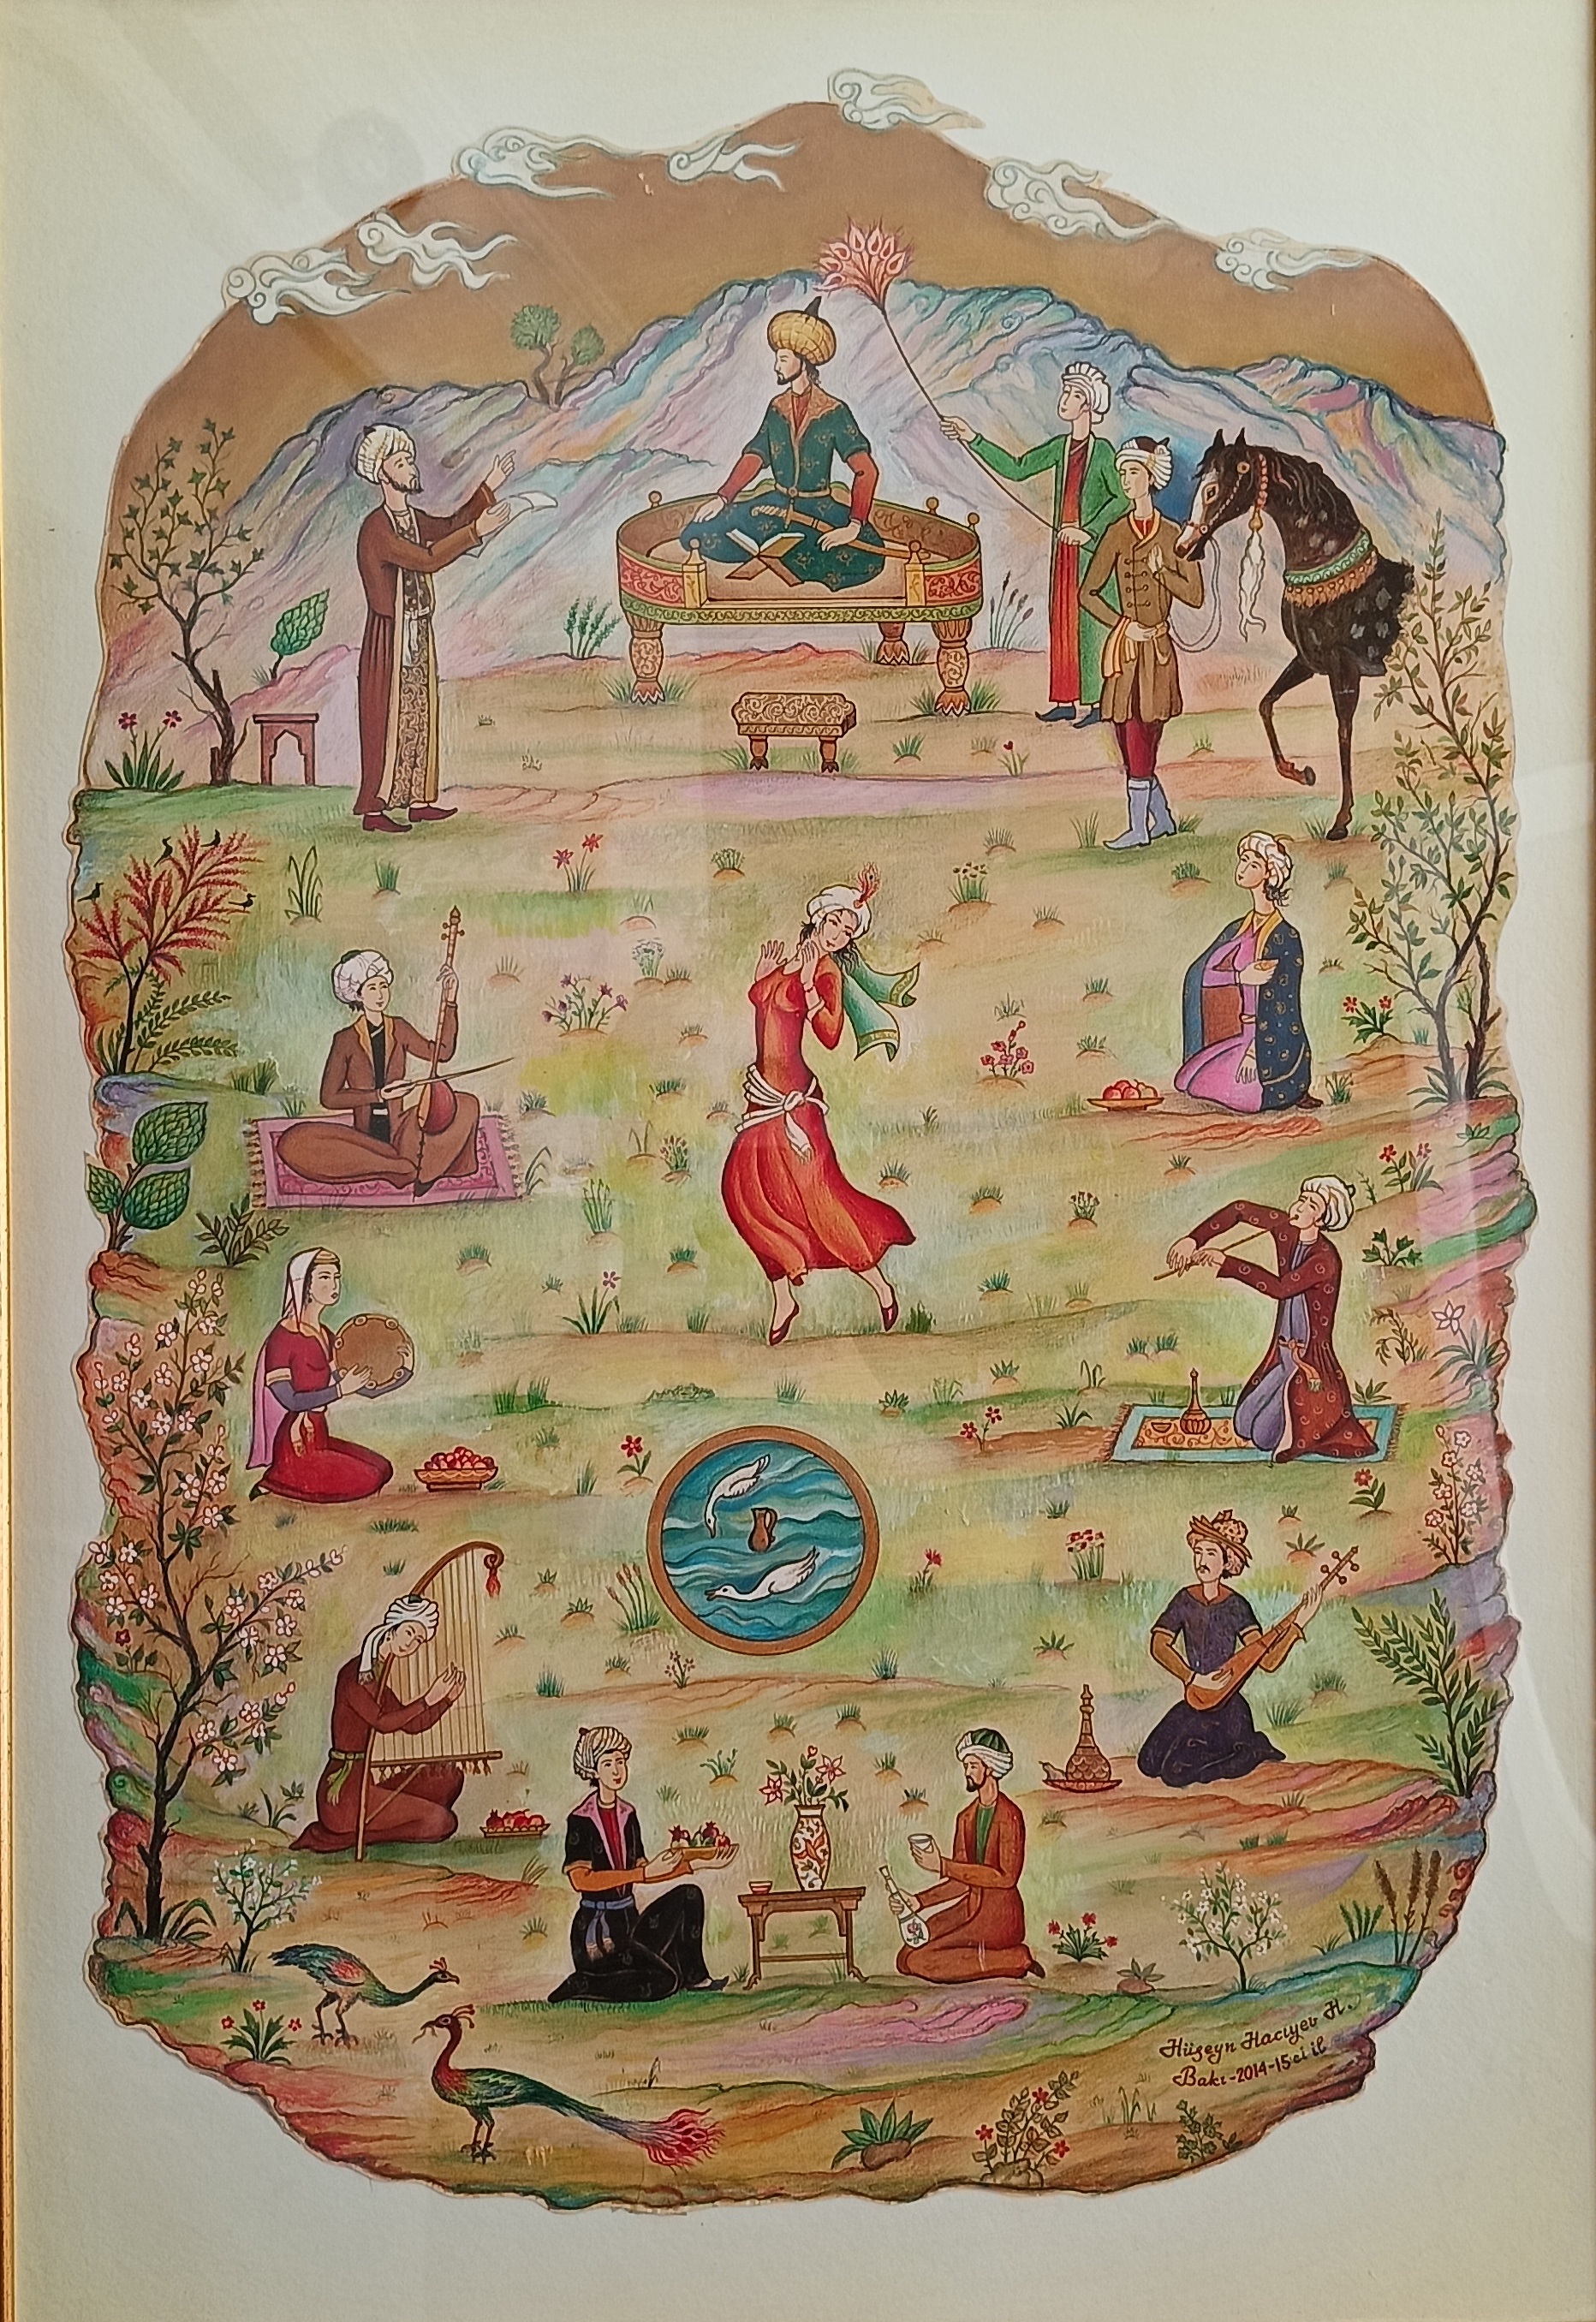 Hüseyn Hacıyev H.
Bakı-2014-15ci il